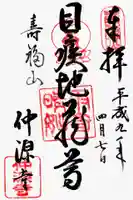 奉拝
平成九年
四月七日
目疾地蔵尊
寿福山
仲源寺